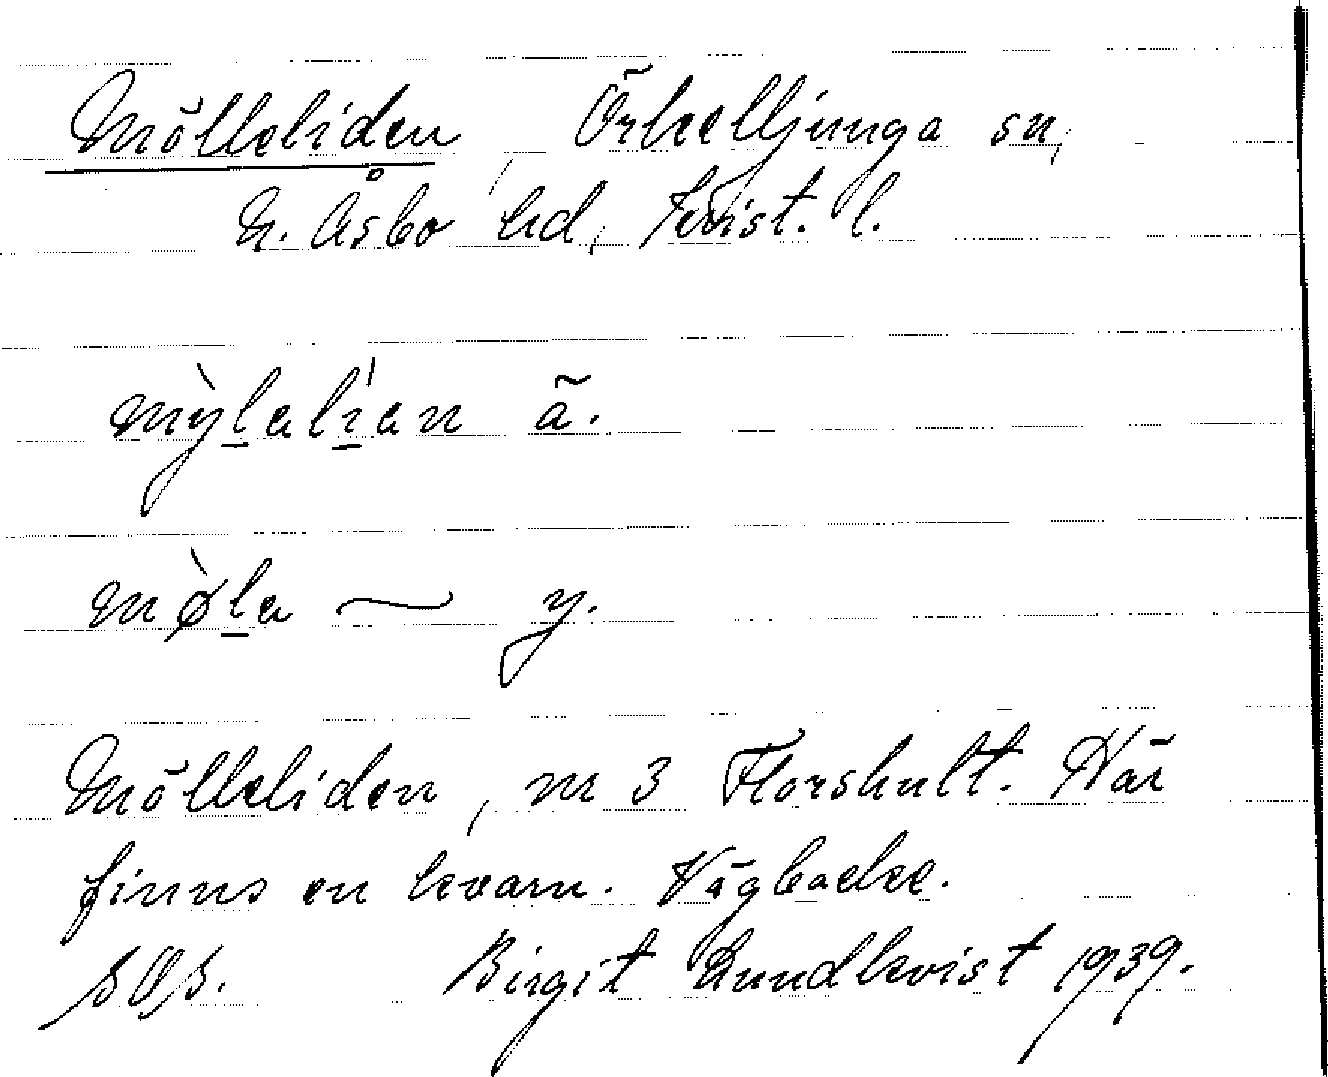 Mölleliden, Örkelljunga sn,
N. Åsbo hd, Krist. l.
mỳlalı̍an ä.
mø̀la ~ y.
Mölleliden, nr 3 Florshult. Där
finns en kvarn. Vägbacke.
SOS. Birgit Lundkvist 1939.